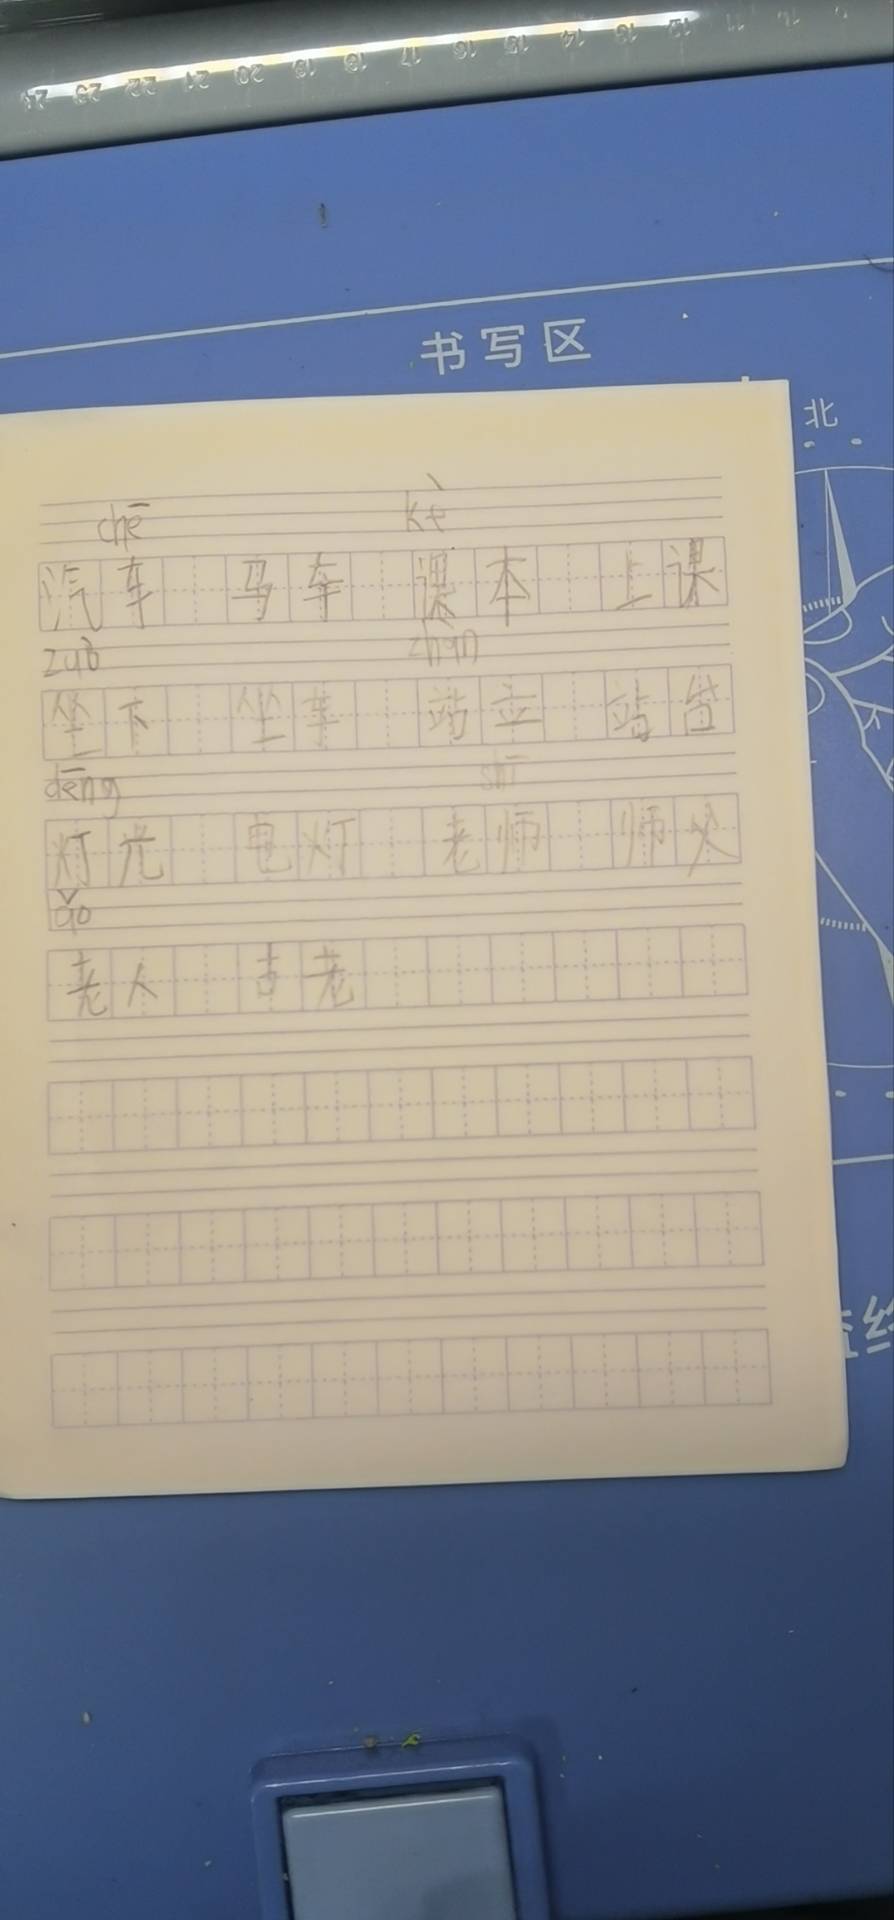 24 23 22 21 20 19 18 17 16 15 14 13 12 11
书写区
北
chē kè
汽车 马车 课本 上课
zuò zhàn
坐下 坐车 站立 站台
dēng shī
灯光 电灯 老师 师父
ǎo
老人 古老